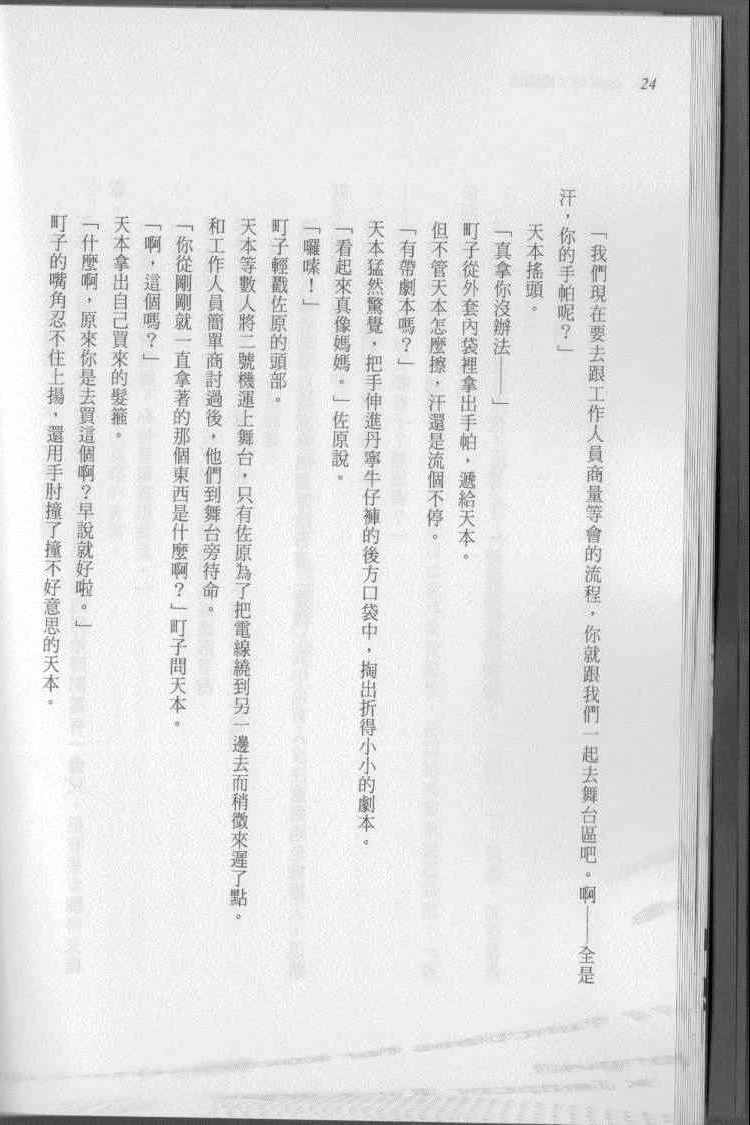 24
「我們現在要去跟工作人員商量等會的流程，你就跟我們一起去舞台區吧。啊——全是
汗，你的手帕呢？」
天本搖頭。
「真拿你沒辦法——」
町子從外套內袋裡拿出手帕，遞給天本。
但不管天本怎麼擦，汗還是流個不停。
「有帶劇本嗎？」
天本猛然驚覺，把手伸進丹寧牛仔褲的後方口袋中，掏出折得小小的劇本。
「看起來真像媽媽。」佐原說。
「囉嗦！」
町子輕戳佐原的頭部。
天本等數人將二號機運上舞台，只有佐原為了把電線繞到另一邊去而稍微來遲了點。
和工作人員簡單商討過後，他們到舞台旁待命。
「你從剛剛就一直拿著的那個東西是什麼啊？」町子問天本。
「啊，這個嗎？」
天本拿出自己買來的髮箍。
「什麼啊，原來你是去買這個啊？早說就好啦。」
町子的嘴角忍不住上揚，還用手肘撞了撞不好意思的天本。